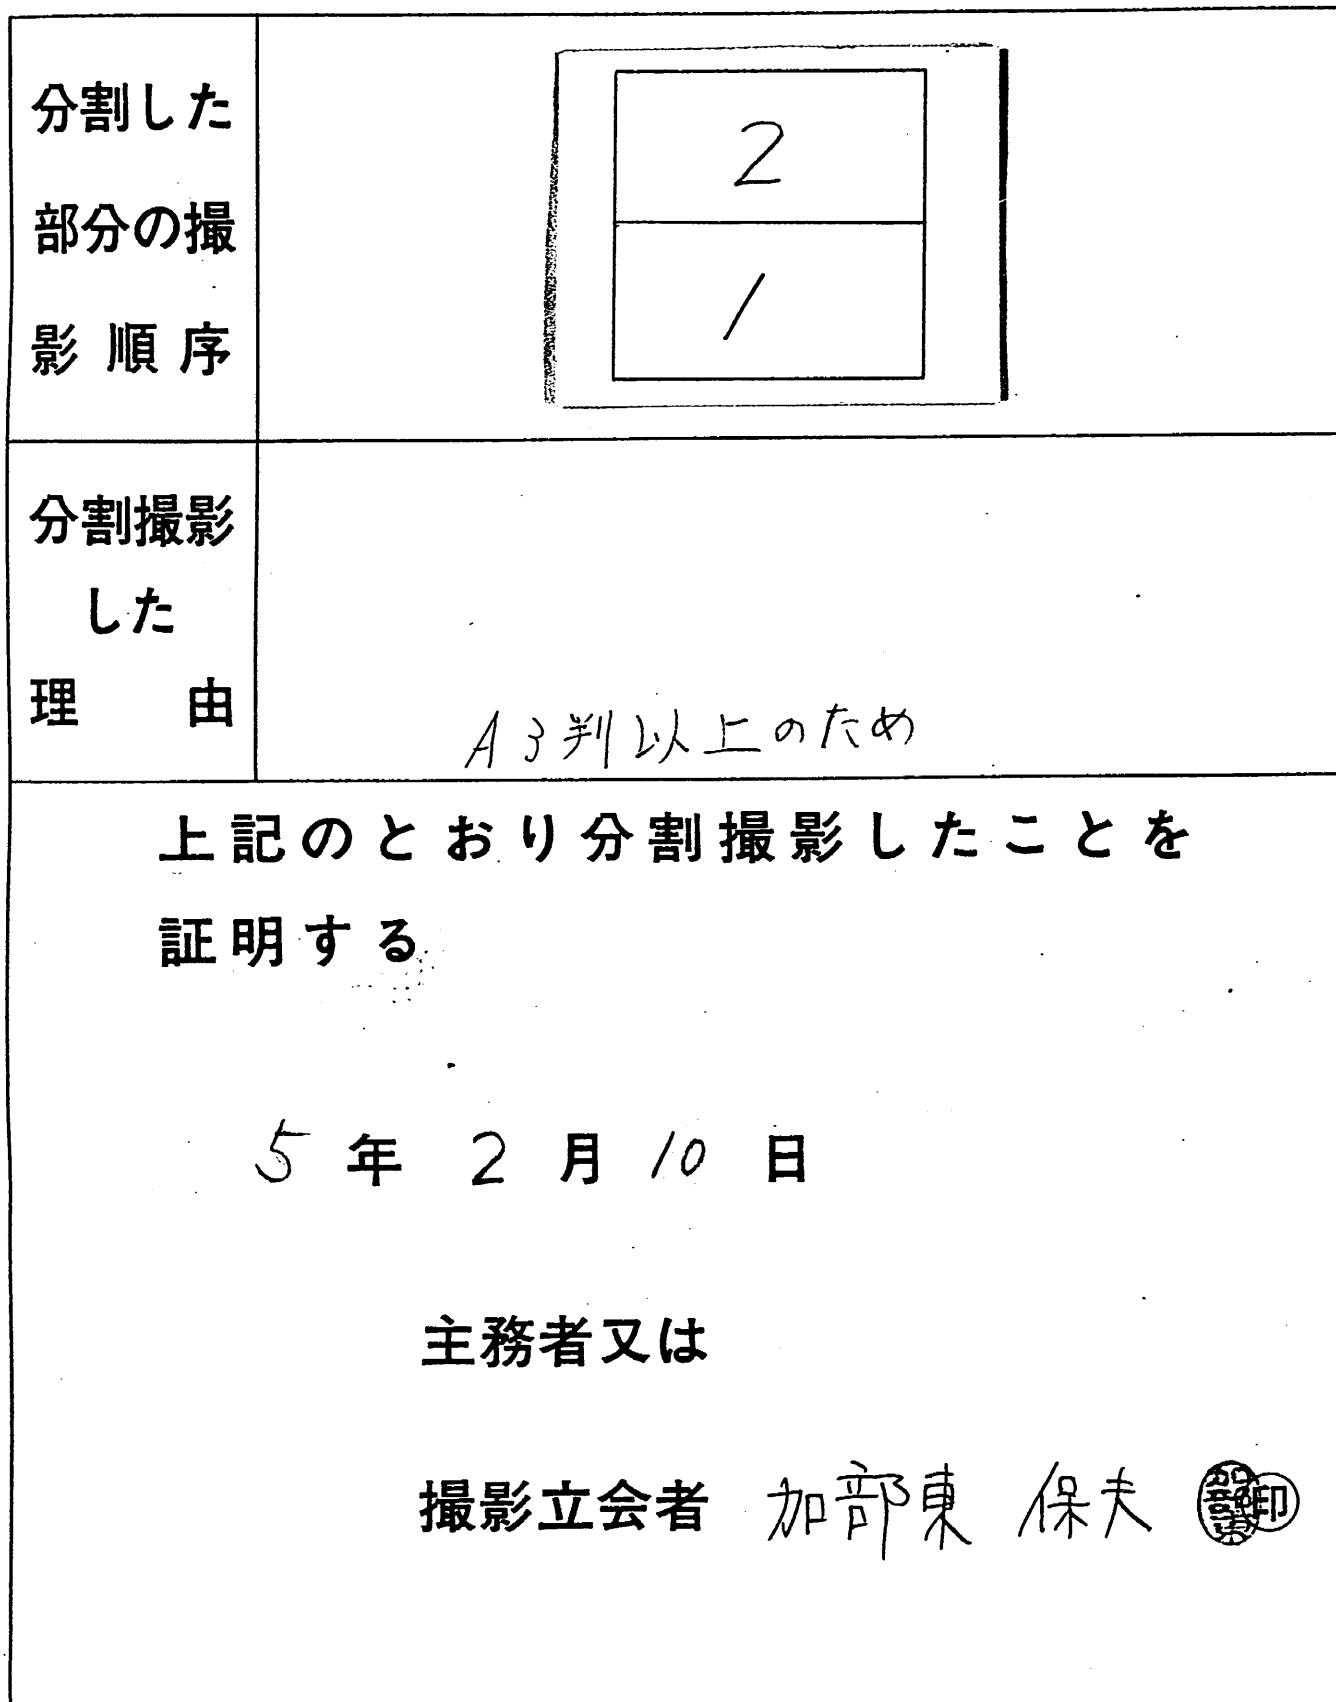 分割した
部分の撮
影順序
2
1
分割撮影
した
理由
A3判以上のため
上記のとおり分割撮影したことを
証明する
5年2月10日
主務者又は
撮影立会者 加部東 保夫 加部東 印